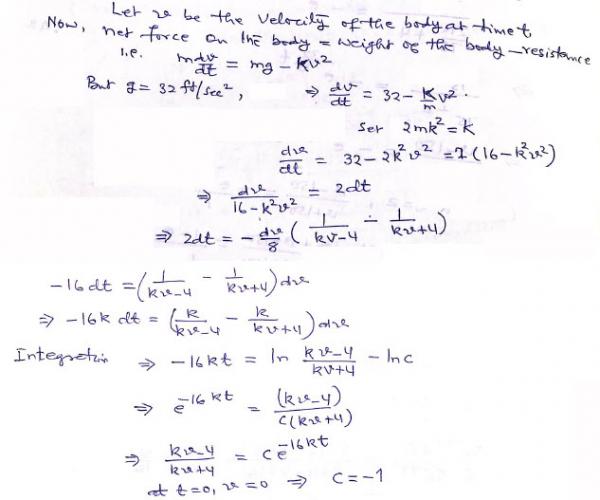 Let v be the velocity of the body at time t,
Now, net force on the body = weight of the body - resistance
i.e. m dv/dt = mg - Kv²
But g = 32 ft/sec², ⇒ dv/dt = 32 - K/m v².
Set 2mk² = K
dv/dt = 32 - 2k²v² = 2(16 - k²v²)
⇒ dv/(16 - k²v²) = 2dt
⇒ 2dt = - dv/8 ( 1/(kv-4) - 1/(kv+4) )
-16 dt = ( 1/(kv-4) - 1/(kv+4) ) dv
⇒ -16k dt = ( k/(kv-4) - k/(kv+4) ) dv
Integration ⇒ -16kt = ln (kv-4)/(kv+4) - ln c
⇒ e^(-16kt) = (kv-4)/(c(kv+4))
⇒ (kv-4)/(kv+4) = c e^(-16kt)
at t=0, v=0 ⇒ C = -1